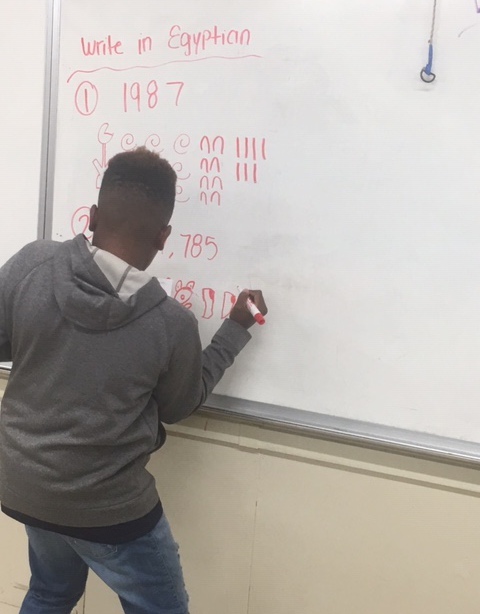 Write in Egyptian
① 1987
② ,785